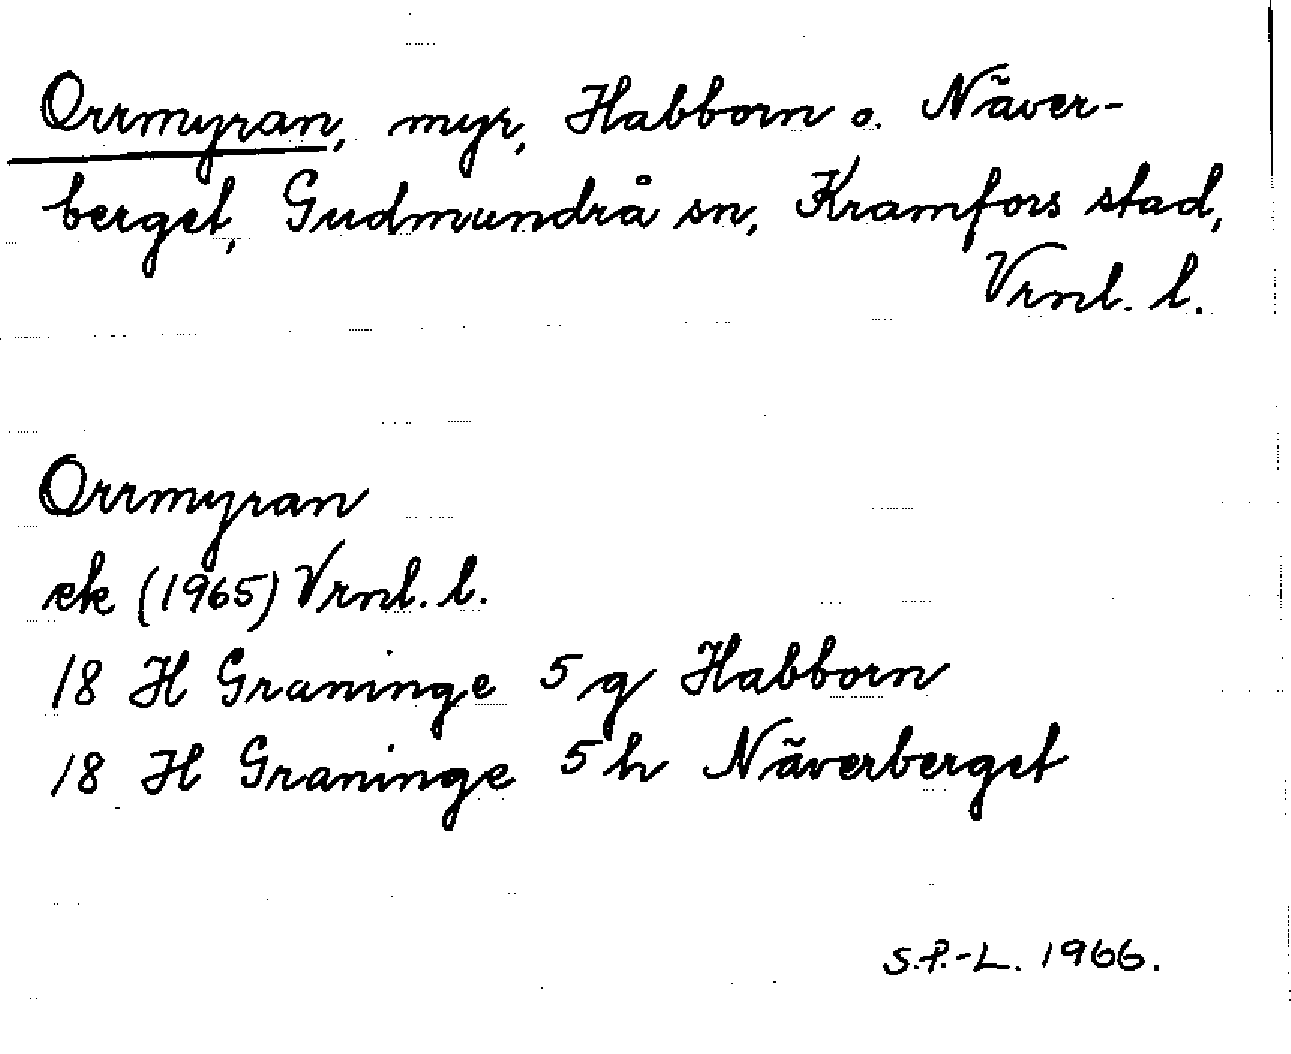 Orrmyran, myr, Habborn o. Näver-
berget, Gudmundrå sn, Kramfors stad,
Vrnl. l.
Orrmyran
ek (1965) Vrnl. l.
18 H Graninge 5 g Habborn
18 H Graninge 5 h Näverberget
S.P.-L. 1966.